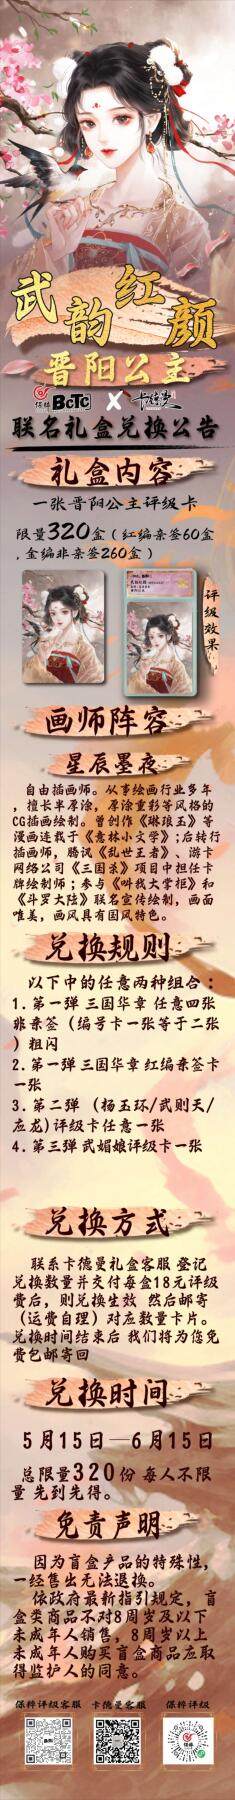 武韵红颜
晋阳公主
保粹 BCTC X 卡德曼
联名礼盒兑换公告
礼盒内容
一张晋阳公主评级卡
限量320盒（红编亲签60盒
，金编非亲签260盒）
评级效果
画师阵容
星辰墨夜
自由插画师。从事绘画行业多年
，擅长半厚涂，厚涂重彩等风格的
CG插画绘制。曾创作《琳琅玉》等
漫画连载于《意林小文学》;后转行
插画师，腾讯《乱世王者》、游卡
网络公司《三国杀》项目中担任卡
牌绘制师；参与《叫我大掌柜》和
《斗罗大陆》联名宣传绘制，画面
唯美，画风具有国风特色。
兑换规则
以下中的任意两种组合：
1.第一弹 三国华章 任意四张
非亲签（编号卡一张等于二张
）粗闪
2.第一弹 三国华章 红编亲签卡
一张
3.第二弹 （杨玉环/武则天/
应龙)评级卡任意一张
4.第三弹 武媚娘评级卡一张
兑换方式
联系卡德曼礼盒客服 登记
兑换数量并交付每盒18元评级
费后，则兑换生效 然后邮寄
（运费自理）对应数量卡片。
兑换时间结束后 我们将为您免
费包邮寄回
兑换时间
5月15日—6月15日
总限量320份 每人不限
量 先到先得。
免责声明
因为盲盒产品的特殊性，
一经售出无法退换。
依政府最新指引规定，盲
盒类商品不对8周岁及以下
未成年人销售，8周岁以上
未成年人购买盲盒商品应取
得监护人的同意。
保粹评级客服 卡德曼客服 保粹评级